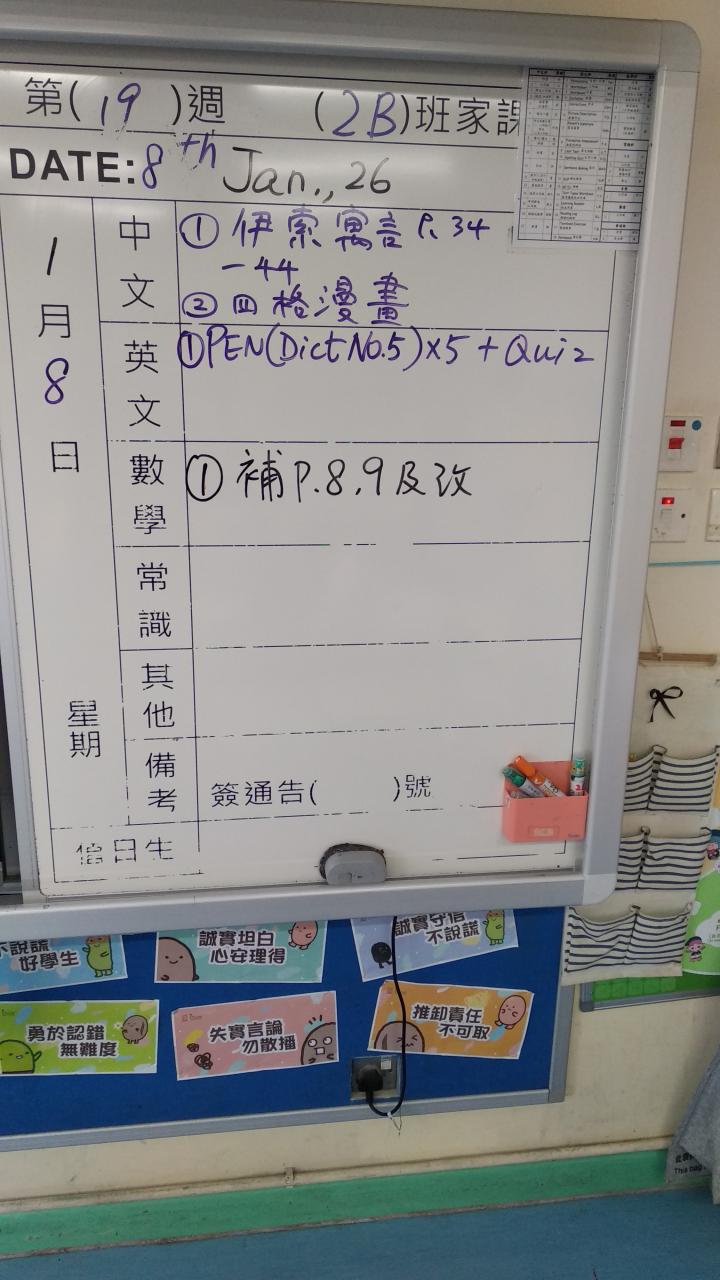 第(19)週 (2B)班家課
DATE: 8th Jan., 26
1月8日
星期
中文
① 伊索寓言 P. 34
-44
② 四格漫畫
英文
① PEN(Dict No.5)×5 + Quiz
數學
① 補 P.8,9 及改
常識
其他
備考
簽通告( )號
值日生
不說謊
好學生
誠實坦白
心安理得
誠實守信
不說謊
勇於認錯
無難度
失實言論
勿散播
推卸責任
不可取
This bag